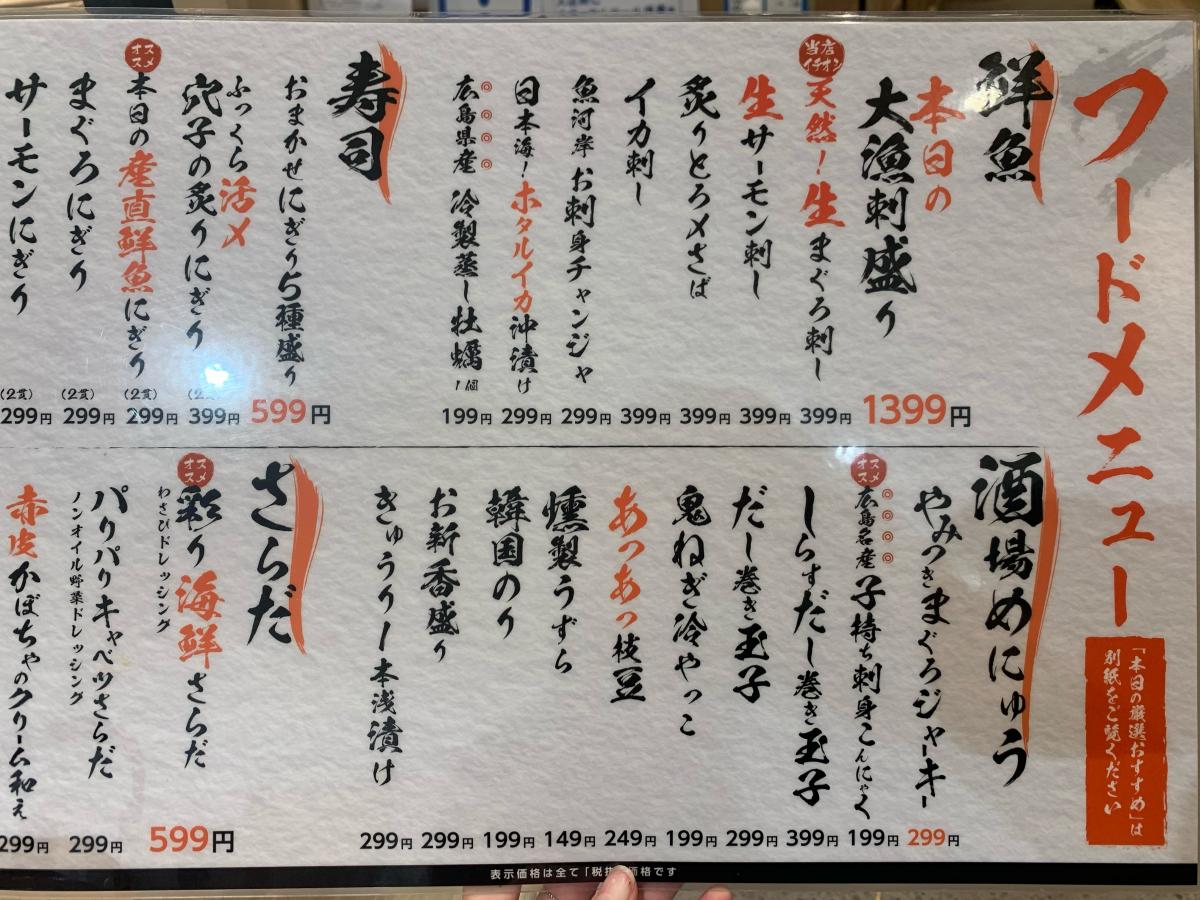 フードメニュー
「本日の厳選おすすめ」は
別紙をご覧ください
鮮魚
本日の
大漁刺盛り
1399円
当店
イチオシ
天然!生まぐろ刺し
399円
生サーモン刺し
399円
炙りとろ〆さば
399円
イカ刺し
399円
魚河岸お刺身チャンジャ
299円
日本海!ホタルイカ沖漬け
299円
広島県産 冷製蒸し牡蠣 1個
199円
寿司
おまかせにぎり5種盛り
599円
ふっくら活〆
穴子の炙りにぎり
(2貫)
399円
オススメ
本日の産直鮮魚にぎり
(2貫)
299円
まぐろにぎり
(2貫)
299円
サーモンにぎり
(2貫)
299円
酒場めにゅう
やみつきまぐろジャーキー
299円
オススメ
広島名産 子持ち刺身こんにゃく
199円
しらすだし巻き玉子
399円
だし巻き玉子
299円
鬼ねぎ冷やっこ
199円
あつあつ枝豆
249円
燻製うずら
149円
韓国のり
199円
お新香盛り
299円
きゅうり一本浅漬け
299円
さらだ
オススメ
彩り海鮮さらだ
わさびドレッシング
599円
パリパリキャベツさらだ
ノンオイル野菜ドレッシング
299円
赤皮かぼちゃのクリーム和え
299円
表示価格は全て「税抜 価格です